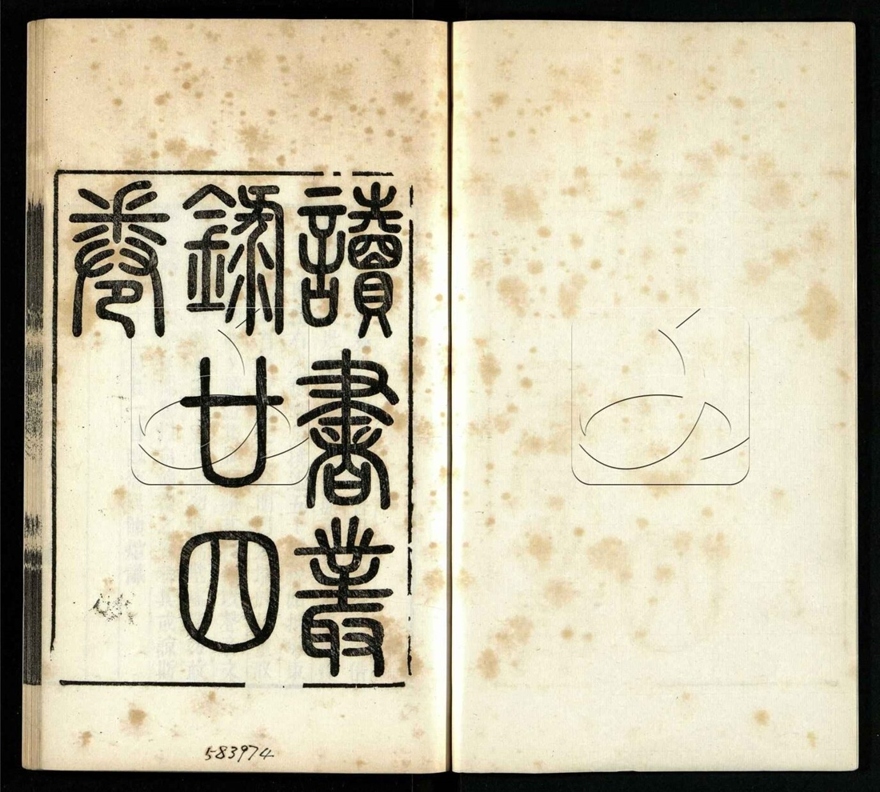 讀書叢
錄廿四
卷
583974